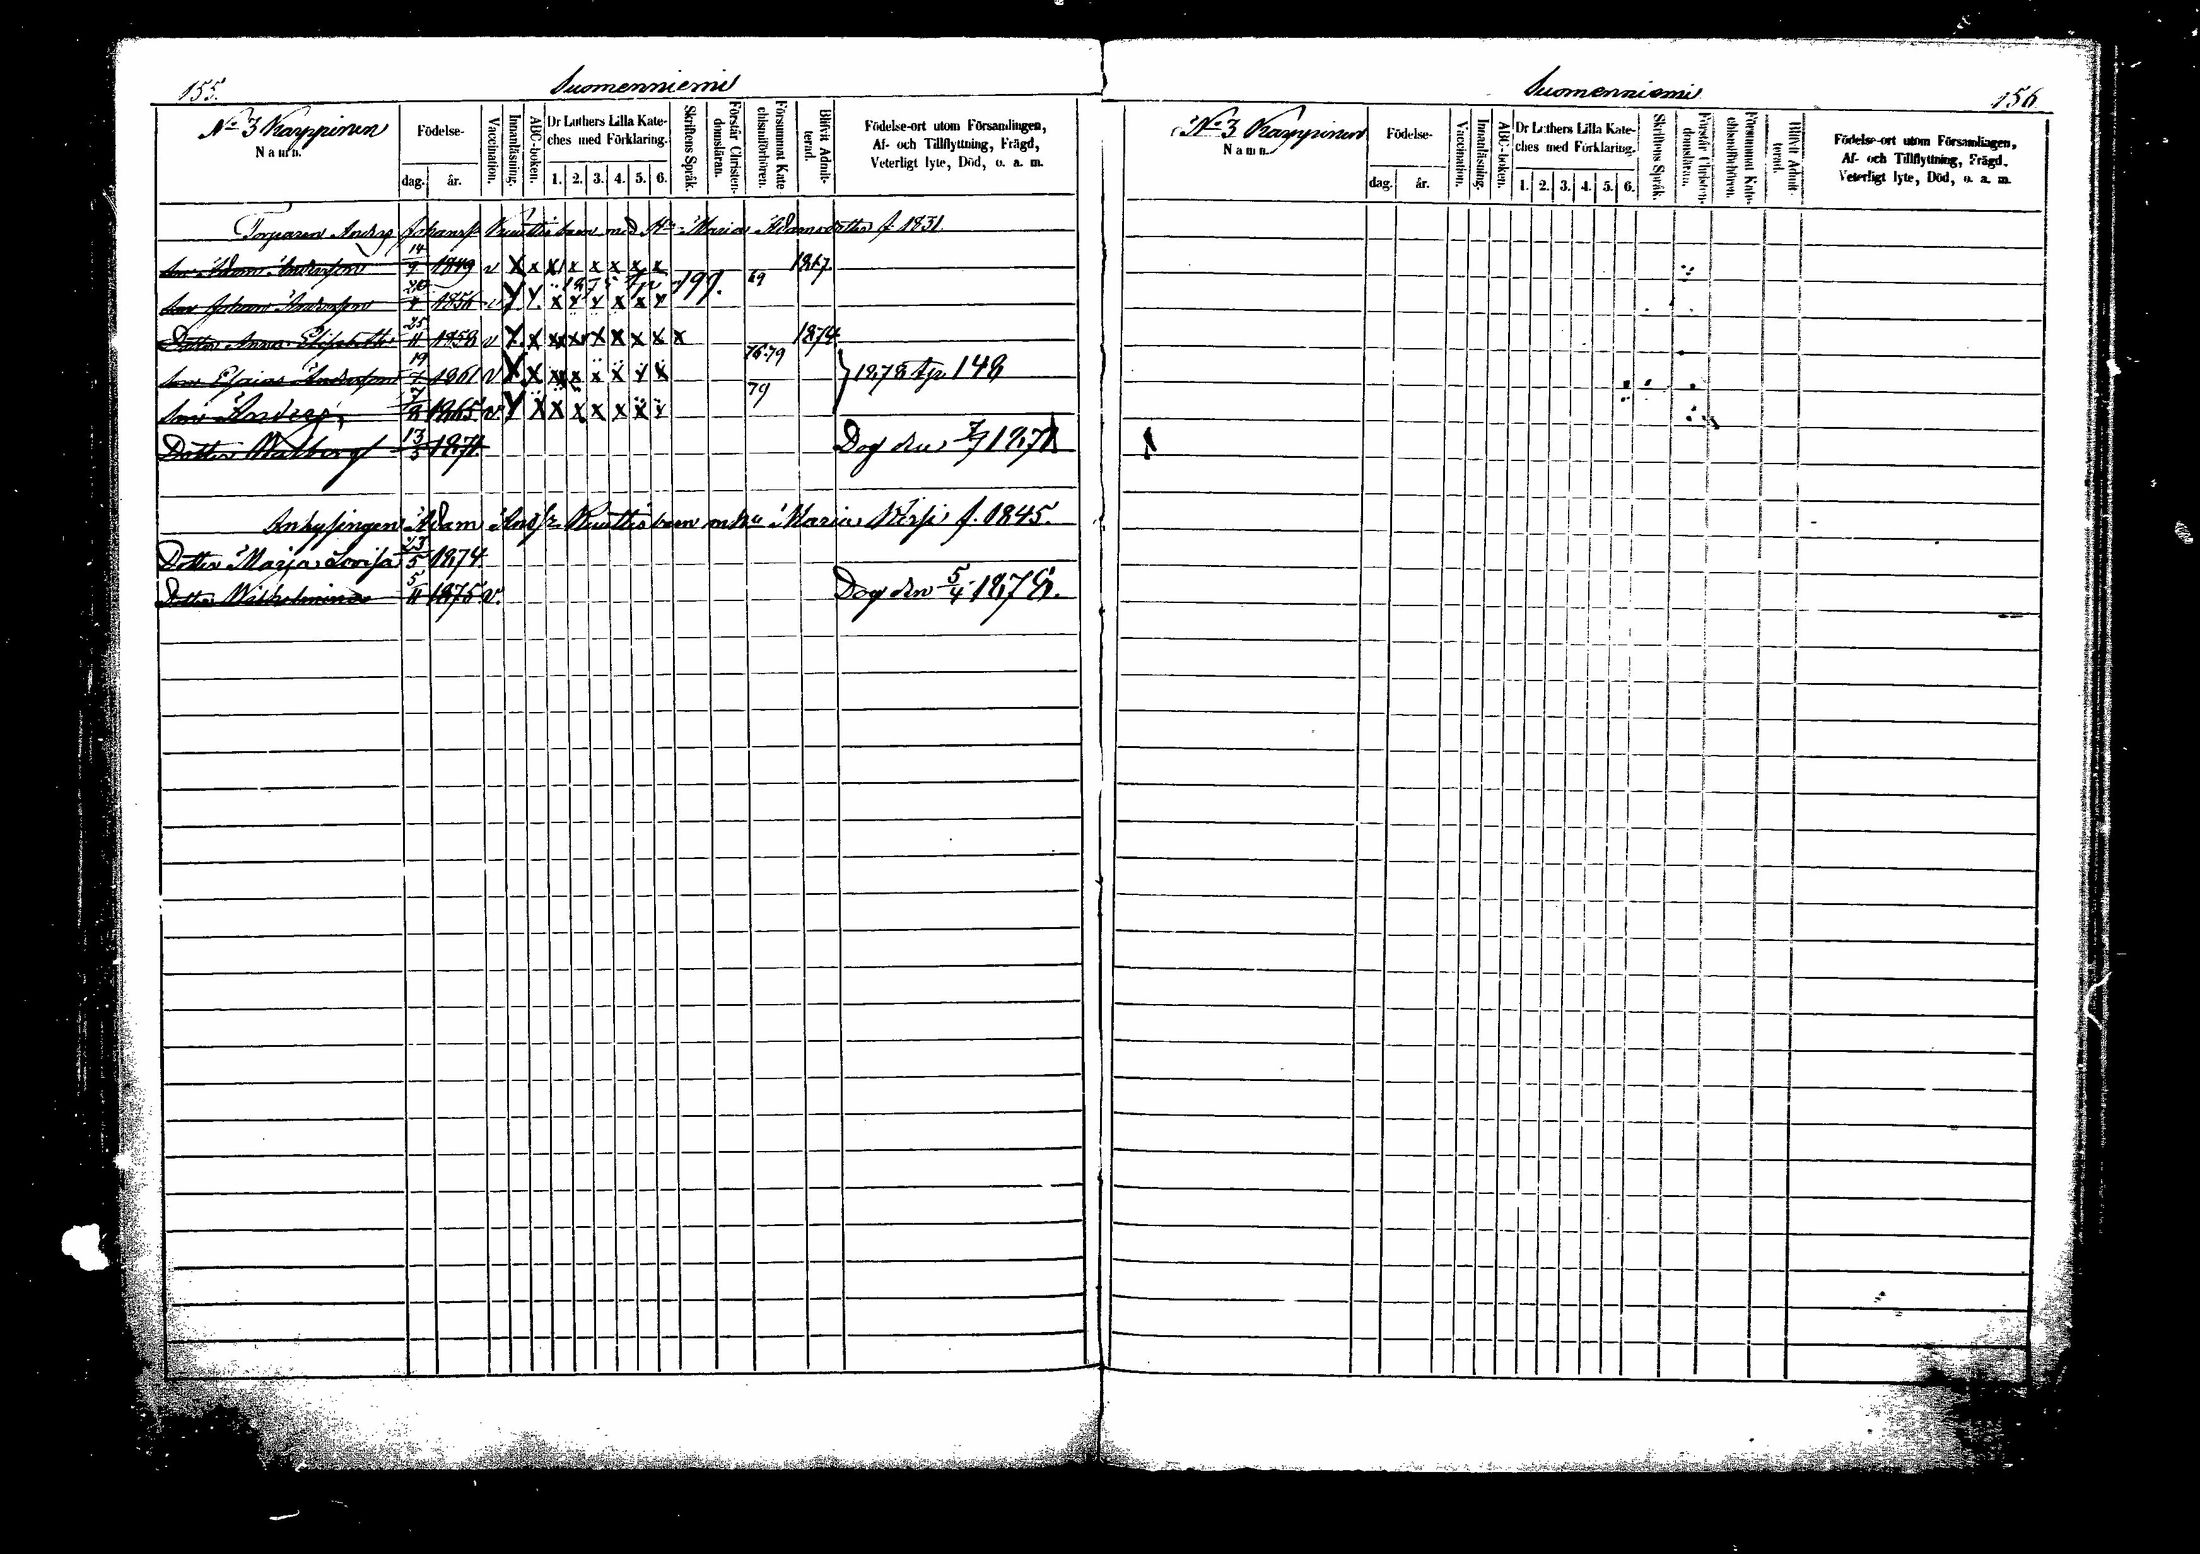 155.
Suomenniemi
No 3 Karppinen
Namn.
Födelse-
dag. år.
Vaccination.
Innanläsning.
ABC-boken.
Dr Luthers Lilla Kate-
ches med Förklaring.
1. 2. 3. 4. 5. 6.
Skriftens Språk.
Förstår Christen-
domsläran.
Försummat Kate-
chismiförhören.
Blifvit Admit-
terad.
Födelse-ort utom Församlingen,
Af- och Tillflyttning, Frägd,
Veterligt lyte, Död, o. a. m.
Torparen Anders Johansp Ruuttis barn med H:u Maria Adamsdotter f. 1831
Son Adam Andersson 14/9 1849 v X x x x x x x x 69 1867
Son Johan Andersson 1856 v 1875 197.
Dotter Anna Elisabeth 25/11 1858 v x x x x x x x x x 1874
Son Esaias Andersson 19/7 1861 v X X x x x x x x 76.79 1878 148
Son Anders 7/8 1865 v 79
Dotter Walborg 13/3 1871 Dog den 1871
Inhysingen Adam Ands: Ruuttis barn m h:u Maria f. 1845.
Dotter Maria Lovisa 23/5 1874
Dotter Wilhelmina 5/11 1875 v. Dog den 5/4 1876.
Suomenniemi
156
No 3 Karppinen
Namn.
Födelse-
dag. år.
Vaccination.
Innanläsning.
ABC-boken.
Dr Luthers Lilla Kate-
ches med Förklaring.
1. 2. 3. 4. 5. 6.
Skriftens Språk.
Förstår Christen-
domsläran.
Försummat Kate-
chismiförhören.
Blifvit Admit-
terad.
Födelse-ort utom Församlingen,
Af- och Tillflyttning, Frägd,
Veterligt lyte, Död, o. a. m.